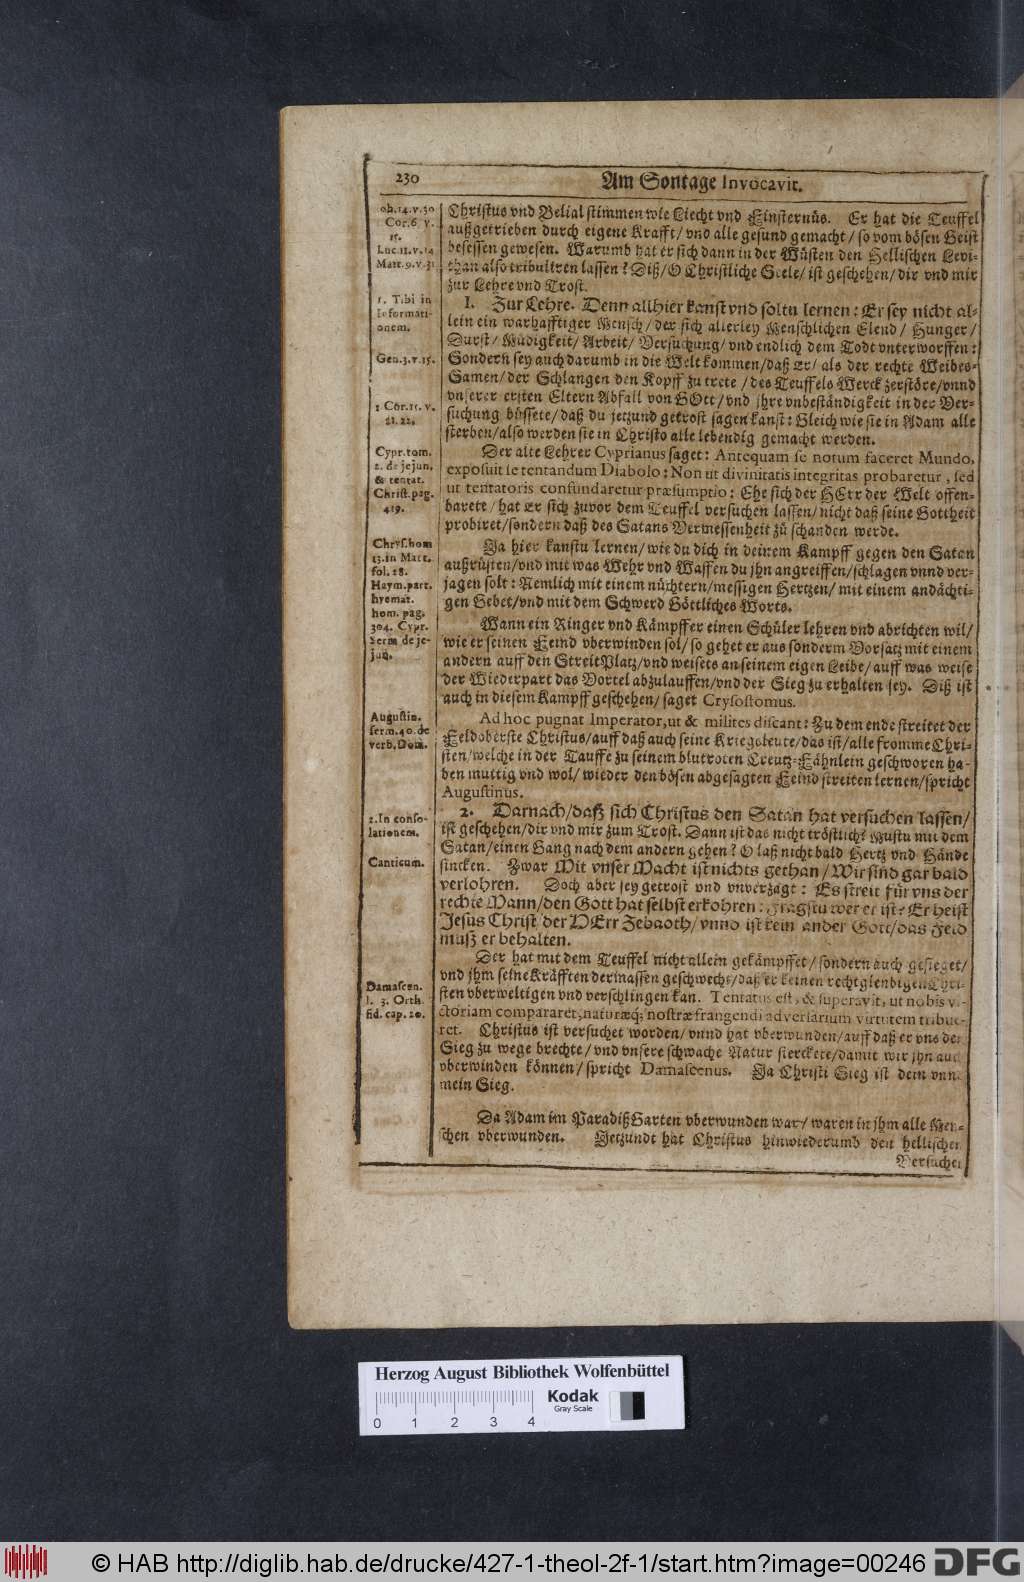 230
Am Sontage Invocavit.
oh.14.v.30
Cor.6. v.
15.
Luc.11.v.14
Marc.9.v.31
1. Tibi in
Informati-
onem.
Gen.3.v.15.
1 Cor.15. v.
21.22.
Cypr.tom.
2. de jejun.
& tentat.
Christ.pag.
419.
Chrys.hom
13.in Matt.
fol. 28.
Haym.part.
hyemat.
hom. pag.
304. Cypr.
Serm de je-
jun.
Augustin.
serm.40.de
verb.Dom.
2.In conso-
lationem.
Canticum.
Damascen.
l. 3. Orth.
fid. cap. 20.
Christus vnd Belial stimmen wie Liecht vnd Finsternüs. Er hat die Teuffel
außgetrieben durch eigene Krafft/ vnd alle gesund gemacht/ so vom bösen Geist
besessen gewesen. Warumb hat er sich dann in der Wüsten den Hellischen Levi-
than also tribuliren lassen? Diß/ O Christliche Seele/ ist geschehen/ dir vnd mir
zur Lehre vnd Trost.
I. Zur Lehre. Denn allhier kanst vnd soltu lernen: Er sey nicht al-
lein ein warhafftiger Mensch/ der sich allerley Menschlichen Elend/ Hunger/
Durst/ Müdigkeit/ Arbeit/ Versuchung/ vnd endlich dem Todt vnterworffen:
Sondern sey auch darumb in die Welt kommen/ daß Er/ als der rechte Weibes-
Samen/ der Schlangen den Kopff zu trete/ des Teuffels Werck zerstöre/ vnnd
vnserer ersten Eltern Abfall von GOtt/ vnd jhre vnbeständigkeit in der Ver-
suchung büssete/ daß du jetzund getrost sagen kanst: Gleich wie sie in Adam alle
sterben/ also werden sie in Christo alle lebendig gemacht werden.
Der alte Lehrer Cyprianus saget: Antequam se notum faceret Mundo,
exposuit se tentandum Diabolo: Non ut divinitatis integritas probaretur, sed
ut tentatoris confundaretur præsumptio: Ehe sich der HErr der Welt offen-
barete/ hat Er sich zuvor dem Teuffel versuchen lassen/ nicht daß seine Gottheit
probiret/ sondern daß des Satans Vermessenheit zu schanden werde.
Ja hier kanstu lernen/ wie du dich in deinem Kampff gegen den Satan
außrüsten/ vnd mit was Wehr vnd Waffen du jhn angreiffen/ schlagen vnnd ver-
jagen solt: Nemlich mit einem nüchtern/ messigen Hertzen/ mit einem andächti-
gen Gebet/ vnd mit dem Schwerd Göttliches Worts.
Wann ein Ringer vnd Kämpffer einen Schüler lehren vnd abrichten wil/
wie er seinen Feind vberwinden sol/ so gehet er aus sonderm Vorsatz mit einem
andern auff den StreitPlatz/ vnd weisets an seinem eigen Leibe/ auff was weise
der Wiederpart das Vortel abzulauffen/ vnd der Sieg zu erhalten sey. Diß ist
auch in diesem Kampff geschehen/ saget Crysostomus.
Ad hoc pugnat Imperator, ut & milites discant: Zu dem ende streitet der
Feldoberste Christus/ auff daß auch seine Kriegsleute/ das ist/ alle fromme Chri-
sten/ welche in der Tauffe zu seinem blutroten Creutz-Fähnlein geschworen ha-
ben muttig vnd wol/ wieder den bösen abgesagten Feind streiten lernen/ spricht
Augustinus.
2. Darnach/ daß sich Christus den Satan hat versuchen lassen/
ist geschehen/ dir vnd mir zum Trost. Dann ist das nicht tröstlich? Mustu mit dem
Satan/ einen Gang nach dem andern gehen? O laß nicht bald Hertz vnd Hände
sincken. Zwar Mit vnser Macht ist nichts gethan/ Wir sind gar bald
verlohren. Doch aber sey getrost vnd vnverzagt: Es streit für vns der
rechte Mann/ den Gott hat selbst erkohren: Fragstu wer er ist? Er heist
Jesus Christ/ der HErr Zebaoth/ vnnd ist kein ander Gott/ das Feld
muß er behalten.
Der hat mit dem Teuffel nicht allein gekämpffet/ sondern auch gesieget/
vnd jhm seine Kräfften dermassen geschwecht/ daß er keinen rechtglenbigen Chri-
sten vberweltigen vnd verschlingen kan. Tentatus est, & superavit, ut nobis vi-
ctoriam compararet, naturæq; nostræ frangendi adversarium virtutem tribue-
ret. Christus ist versuchet worden/ vnnd hat vberwunden/ auff daß er vns den
Sieg zu wege brechte/ vnd vnsere schwache Natur sterckete/ damit wir jhn auch
vberwinden können/ spricht Damascenus. Ja Christi Sieg ist dein vnn
mein Sieg.
Da Adam im ParadißGarten vberwunden war/ waren in jhm alle Men-
schen vberwunden. Jetzundt hat Christus hinwiederumb den hellischen
Versucher
Herzog August Bibliothek Wolfenbüttel
Kodak
Gray Scale
0 1 2 3 4
© HAB http://diglib.hab.de/drucke/427-1-theol-2f-1/start.htm?image=00246
DFG